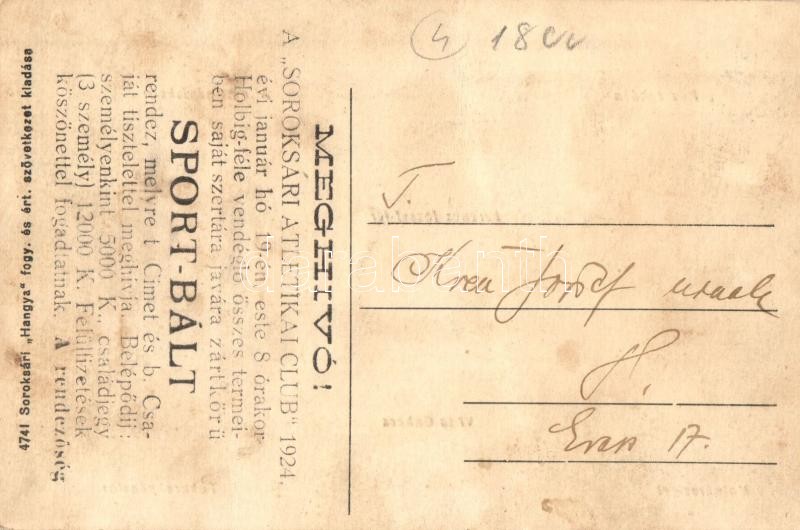 4 1800
MEGHIVÓ!
A „SOROKSÁRI ATLETIKAI CLUB" 1924.
évi január hó 19-én este 8 órakor
Holbig-féle vendéglő összes termei-
ben saját szertára javára zártkörü
SPORT-BÁLT
rendez, melyre t Cimet és b. Csa-
ját tisztelettel meghivja Belépődij:
személyenkint 5000 K., családjegy
(3 személy) 12000 K. Felülfizetések
köszönettel fogadtatnak. A rendezőség
4741 Soroksári „Hangya" fogy. és ért. szövetkezet kiadása
T.
József urnak
H.
17.
darabanth